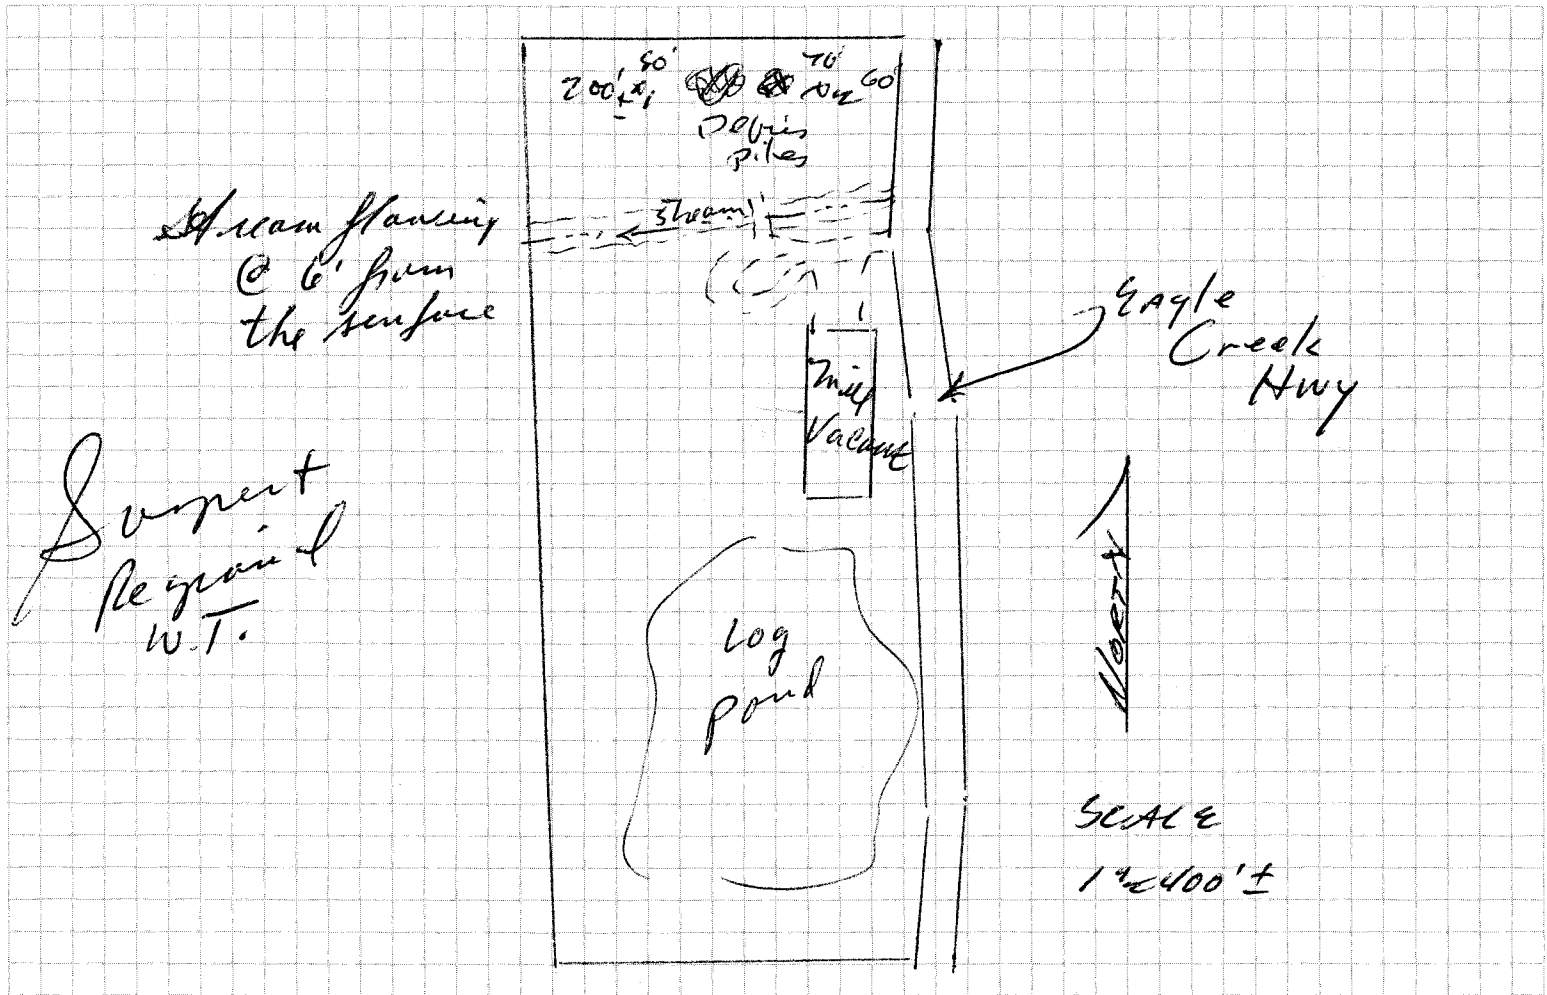 50'
200' ±
70'
60'
Debris
piles
Stream flowing
@ 6' from
the surface
stream
Eagle
Creek
Hwy
Mill
Vacant
Suspect
Regional
W.T.
Log
pond
NORTH
SCALE
1" = 400' ±